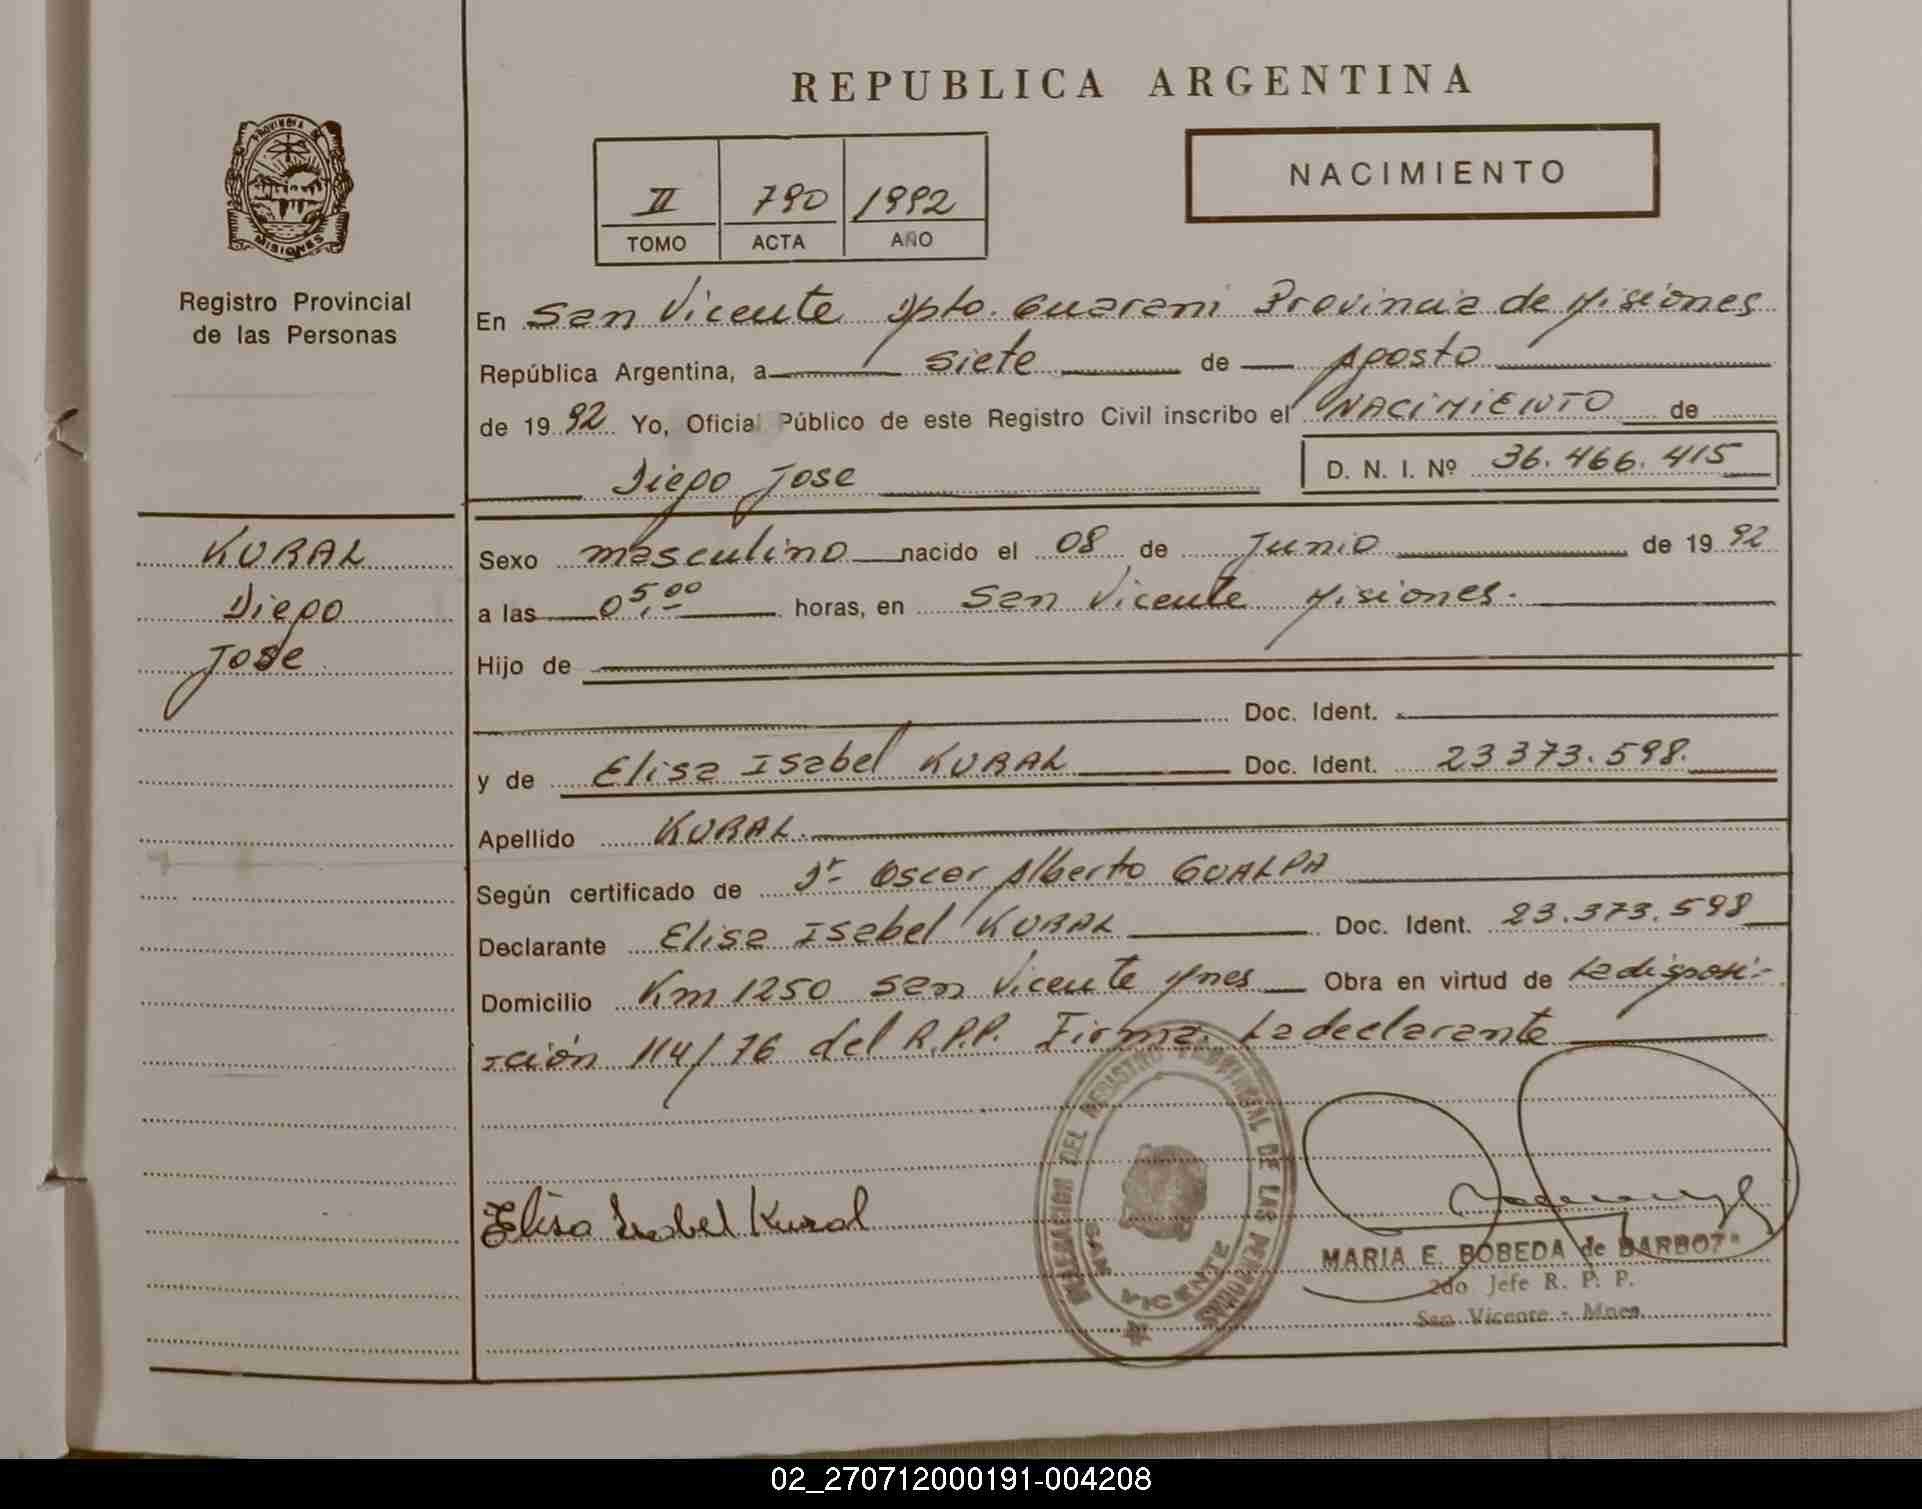 REPUBLICA ARGENTINA
PROVINCIA DE
MISIONES
Registro Provincial
de las Personas
NACIMIENTO
II 790 1992
TOMO ACTA AÑO
En San Vicente Dpto. Guarani Provincia de Misiones
República Argentina, a siete de Agosto
de 1992 Yo, Oficial Público de este Registro Civil inscribo el NACIMIENTO de
Diego Jose D. N. I. Nº 36.466.415
KURAL
Diego
Jose
Sexo masculino nacido el 08 de Junio de 1992
a las 05,00 horas, en San Vicente Misiones.
Hijo de
Doc. Ident.
y de Elisa Isabel KURAL Doc. Ident. 23373.598.
Apellido KURAL.
Según certificado de Dr Oscar Alberto GUALPA
Declarante Elisa Isabel KURAL Doc. Ident. 23.373.598
Domicilio Km 1250 San Vicente Mnes Obra en virtud de La disposi-
-ción 114/76 del R.P.P. Firma: La declarante
DELEGACION DEL REGISTRO PROVINCIAL DE LAS PERSONAS
SAN VICENTE
Elisa Isabel Kural
MARIA E. BOBEDA de BARBOZA
2do Jefe R. P. P.
San Vicente - Mnes.
02_270712000191-004208